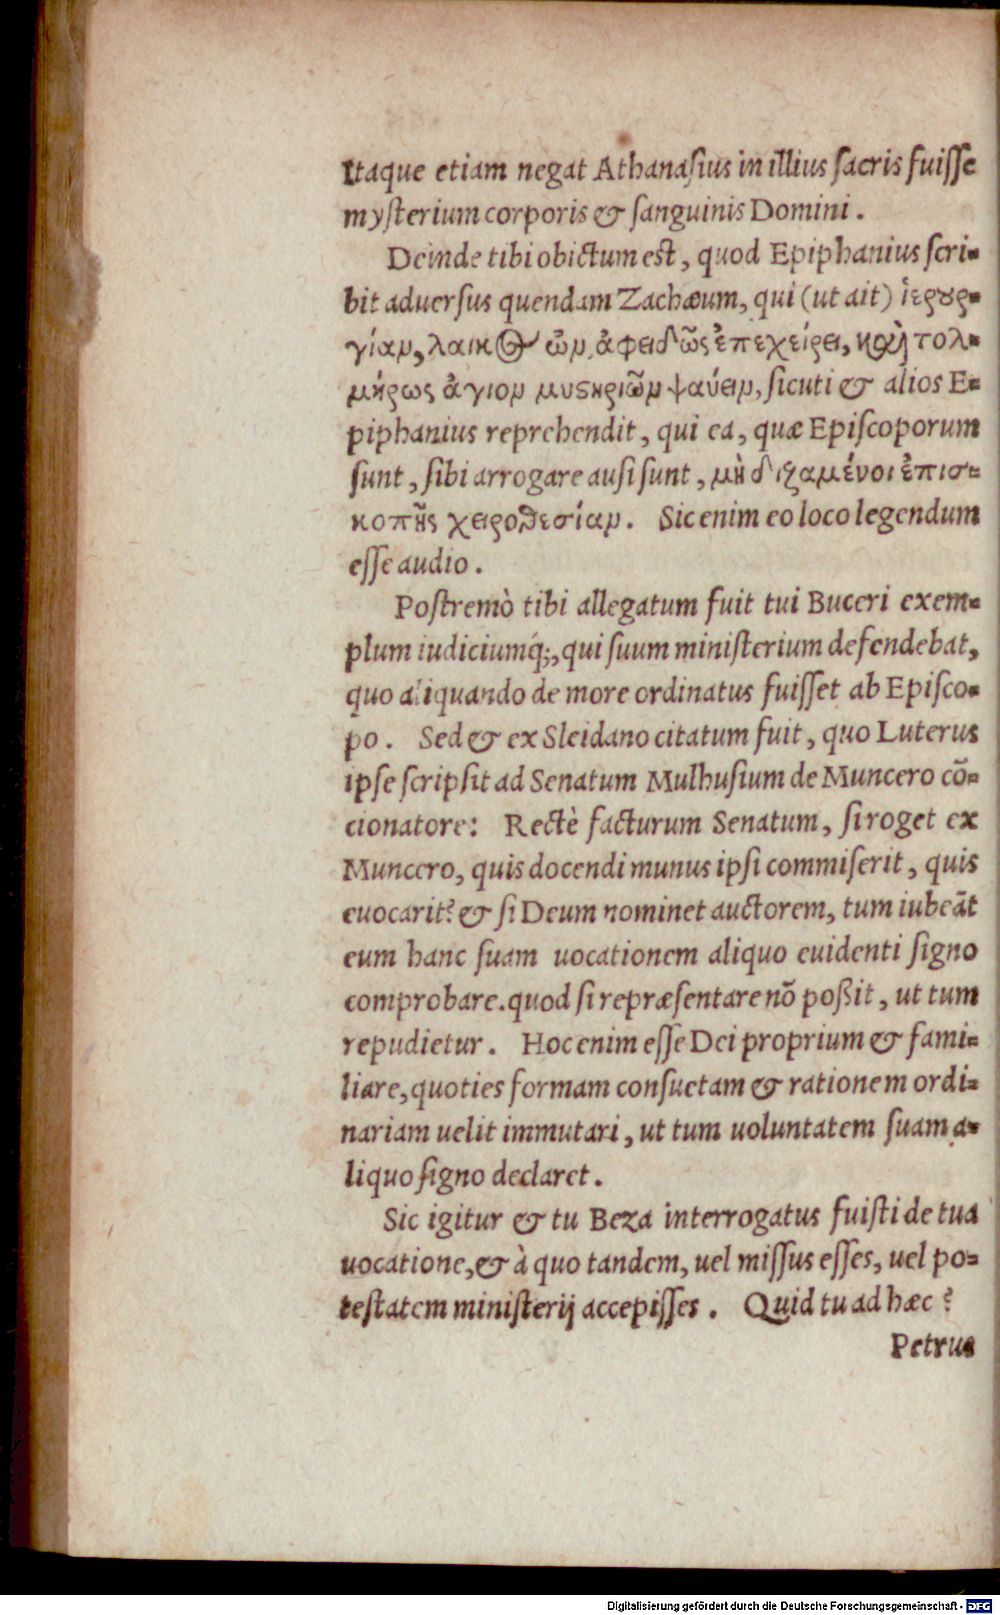 Itaque etiam negat Athanasius in illius sacris fuisse
mysterium corporis & sanguinis Domini.
Deinde tibi obiectum est, quod Epiphanius scri-
bit aduersus quendam Zachæum, qui (ut ait) ἱερουρ-
γίαν, λαικὸς ὢν, ἀφειδῶς ἐπεχείρει, καὶ τολ-
μήρως ἁγίον μυστηριῶν ψαύειν, sicuti & alios E-
piphanius reprehendit, qui ea, quæ Episcoporum
sunt, sibi arrogare ausi sunt, μὴ διξαμένοι ἐπισ-
κοπῆς χειροθεσίαν. Sic enim eo loco legendum
esse audio.
Postremò tibi allegatum fuit tui Buceri exem-
plum iudiciumq́;, qui suum ministerium defendebat,
quo aliquando de more ordinatus fuisset ab Episco-
po. Sed & ex Sleidano citatum fuit, quo Luterus
ipse scripsit ad Senatum Mulhusium de Muncero cō-
cionatore: Rectè facturum Senatum, si roget ex
Muncero, quis docendi munus ipsi commiserit, quis
euocarit? & si Deum nominet auctorem, tum iubeāt
eum hanc suam uocationem aliquo euidenti signo
comprobare. quod si repræsentare nō poßit, ut tum
repudietur. Hoc enim esse Dei proprium & fami-
liare, quoties formam consuetam & rationem ordi-
nariam uelit immutari, ut tum uoluntatem suam a-
liquo signo declaret.
Sic igitur & tu Beza interrogatus fuisti de tua
uocatione, & à quo tandem, uel missus esses, uel po-
testatem ministerij accepisses. Quid tu ad hæc?
Petrus
Digitalisierung gefördert durch die Deutsche Forschungsgemeinschaft - DFG